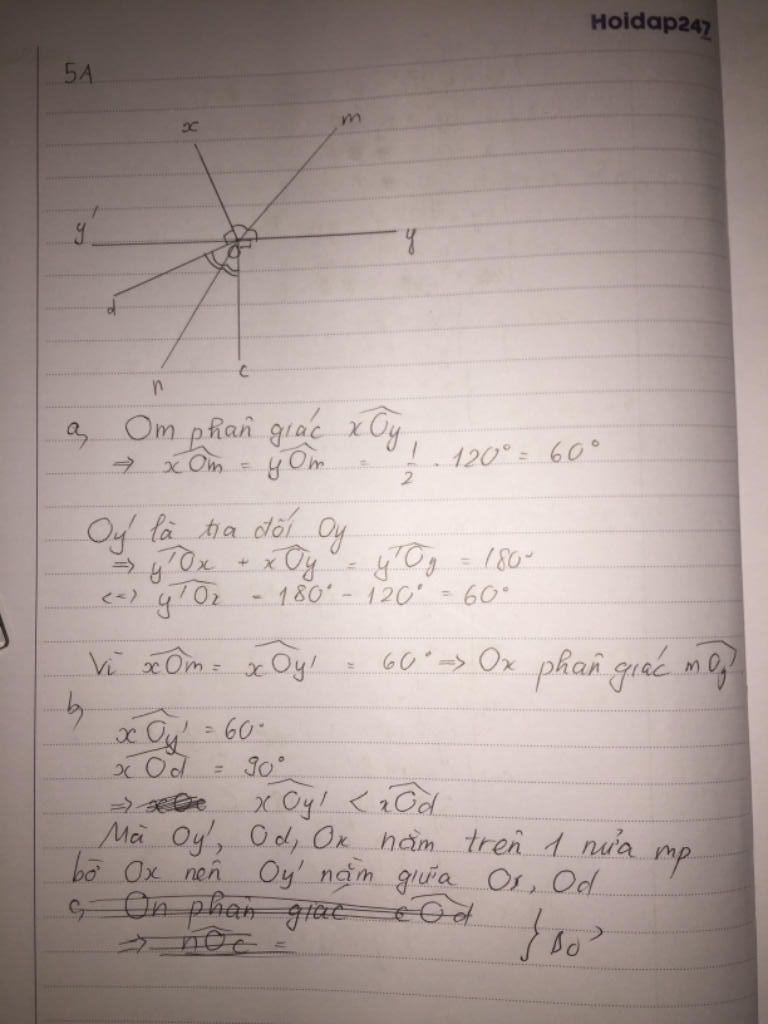 Hoidap247
5A
x
m
y'
O
y
d
n
c
a, Om phân giác xÔy
⇒ xÔm = yÔm = 1/2 . 120° = 60°
Oy' là tia đối Oy
⇒ y'Ôx + xÔy = y'Ôy = 180°
<=> y'Ôx = 180° - 120° = 60°
Vì xÔm = xÔy' = 60° ⇒ Ox phân giác mÔy'
b,
xÔy' = 60°
xÔd = 90°
⇒ xÔy' < xÔd
Mà Oy', Od, Ox nằm trên 1 nửa mp
bờ Ox nên Oy' nằm giữa Ox, Od
c, On phân giác cÔd
⇒ nÔc =
} Bỏ